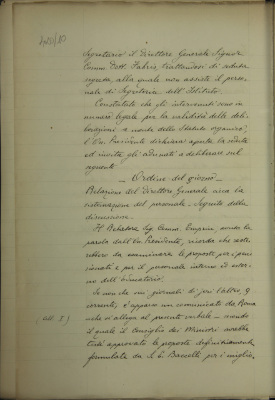 Segretario il Direttore Generale Signor
Comm. Dott. Fabris, trattandosi di seduta
segreta, alla quale non assiste il perso-
nale di Segreteria dell'Istituto.
Constatato che gli intervenuti sono in
numero legale per la validità delle deli-
berazioni, a mente dello Statuto organico,
l'On. Presidente dichiara aperta la seduta
ed invita gli adunati a deliberare sul
seguente
Ordine del giorno
Relazione del Direttore Generale circa la
sistemazione del personale - Seguito della
discussione.
Il Relatore Sig. Comm. Eugenio, avuta la
parola dall'On. Presidente, ricorda che reste-
rebbero da esaminare le proposte per i pen-
sionati e per il personale interno ed ester-
no dell'
Se non che nei giornali di jeri l'altro, 9
corrente, è apparso un comunicato da Roma
che si allega al presente verbale - secondo
(All. I)
il quale il Consiglio dei Ministri avrebbe
approvato le proposte definitivamente
formulate da S. E. Baccelli per i miglio-